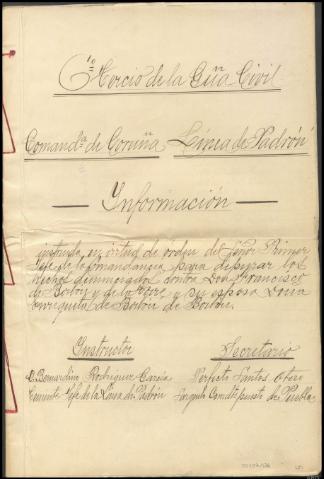 6º Tercio de la Guª Civil
Comandª de Coruña Línea de Padrón
Información
instruida en virtud de orden del Señor Primer
Jefe de la Comandancia para depurar los
hechos denunciados contra Don Francisco
de Borbón y de la Torre y su esposa Doña
Enriqueta de Borbón de Borbón.
Instructor Secretario
D. Bernardino Rodríguez García Perfecto Santos Otero
Teniente Jefe de la Línea de Padrón Comte puesto de Puebla